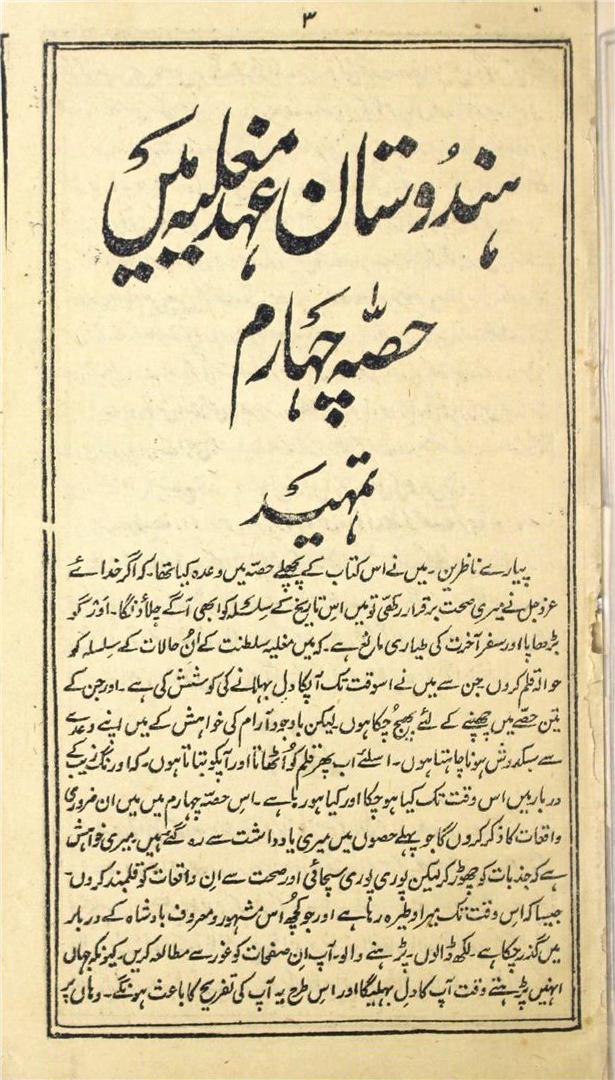 ۳
ہندوستان عہد مغلیہ میں
حصّہ چہارم
تمہید
پیارے ناظرین۔ میں نے اس کتاب کے پچھلے حصّہ میں وعدہ کیا تھا۔ کہ اگر خدائے
عزوجل نے میری صحت برقرار رکھّی تو میں اس تاریخ کے سلسلہ کو ابھی آگے چلاؤنگا۔ اور گو
بڑھاپا اور سفر آخرت کی طیاری مانع ہے۔ کہ میں مغلیہ سلطنت کے اُن حالات کے سلسلہ کو
حوالۂ قلم کروں جن سے میں نے اسوقت تک آپکا دل بہلانے کی کوشش کی ہے۔ اور جن کے
تین حصّے میں چھپنے کے لئے بھیج چُکا ہوں۔ لیکن باوجود آرام کی خواہش کے میں اپنے وعدے
سے سبکدوش ہونا چاہتا ہوں۔ اسلئے اب پھر قلم کو اُٹھاتا اور آپکو بتاتا ہوں۔ کہ اورنگ زیب کے
دربار میں اس وقت تک کیا ہو چکا اور کیا ہو رہا ہے۔ اس حصّہ چہارم میں میں ان ضروری
واقعات کا ذکر کروں گا جو پہلے حصوں میں میری یادداشت سے رہ گئے ہیں۔ میری خواہش
ہے کہ جذبات کو چھوڑ کر لیکن پوری پوری سچائی اور صحت سے ان واقعات کو قلمبند کروں۔
جیسا کہ اس وقت تک میرا وطیرہ رہا ہے اور جو کچھ اُس مشہور و معروف بادشاہ کے دربار
میں گذر چکا ہے۔ لکھ ڈالوں۔ پڑہنے والو۔ آپ ان صفحات کو غور سے مطالعہ کریں۔ کیونکہ جہاں
انہیں پڑہتے وقت آپ کا دل بہلیگا اور اس طرح یہ آپ کی تفریح کا باعث ہونگے۔ وہاں پر